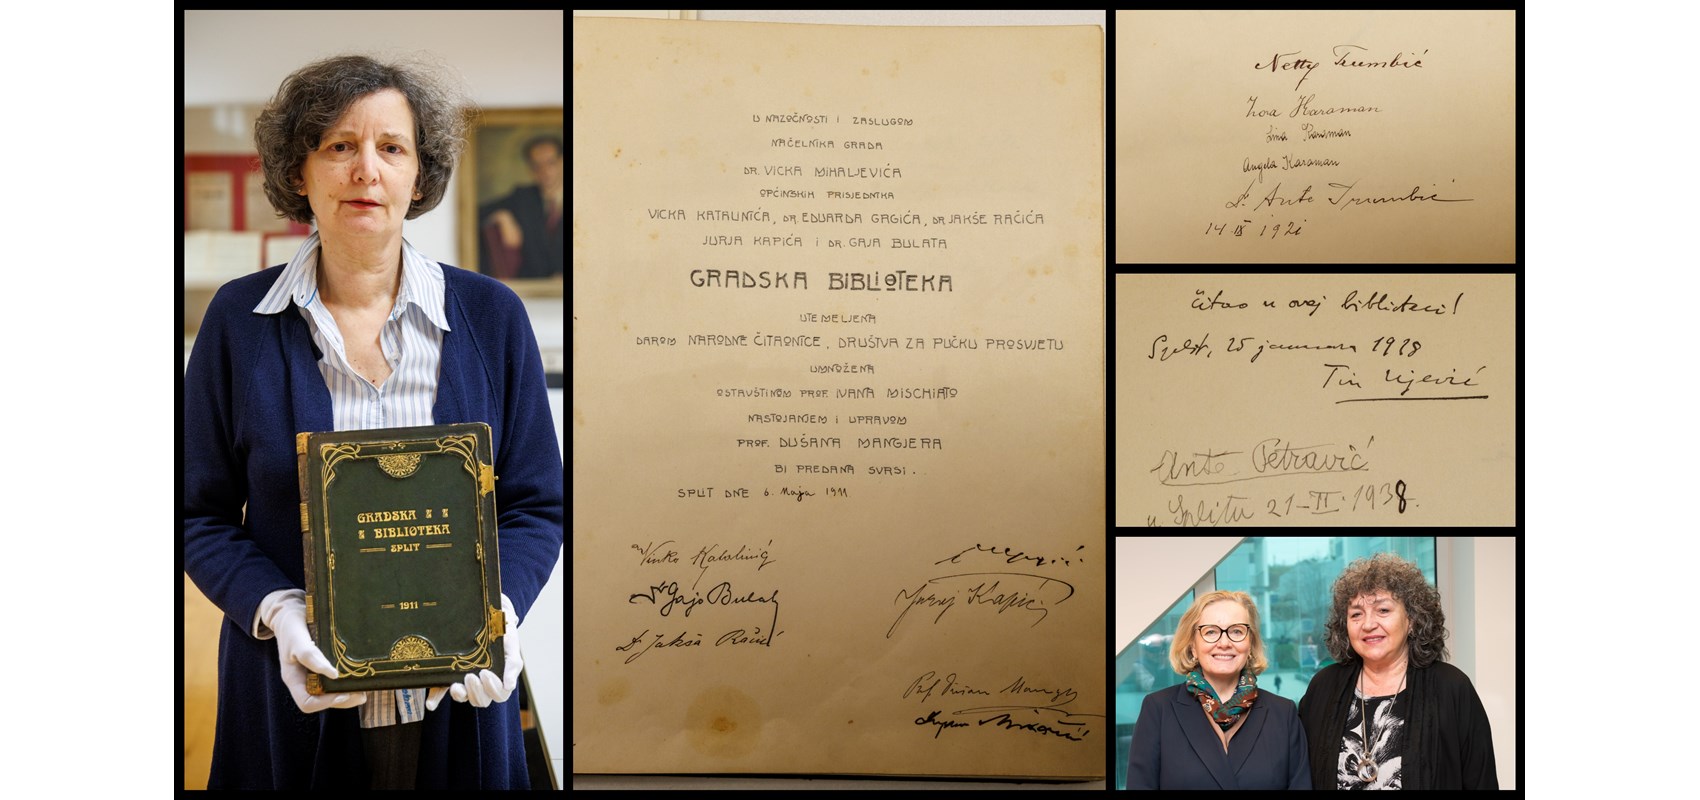 GRADSKA
BIBLIOTEKA
SPLIT
1911
U NAZOČNOSTI I ZASLUGOM
NAČELNIKA GRADA
DR. VICKA MIHALJEVIĆA
OPĆINSKIH PRISJEDNIKA
VICKA KATALINIĆA, DR. EDUARDA GRGIĆA, DR. JAKŠE RAČIĆA
JURJA KAPIĆA I DR. GAJA BULATA
GRADSKA BIBLIOTEKA
UTEMELJENA
DAROM NARODNE ČITAONICE, DRUŠTVA ZA PUČKU PROSVJETU
UMNOŽENA
OSTAVŠTINOM PROF. IVANA MISCHIATO
NASTOJANJEM I UPRAVOM
PROF. DUŠANA MANGJERA
BI PREDANA SVRSI.
SPLIT DNE 6. Maja 1911
Vinko Katalinić
Dr Gajo Bulat
Juraj Kapić
Dr Jakša Račić
Prof Dušan
Netty Trumbić
Zora Karaman
Karaman
Angela Karaman
Dr. Ante Trumbić
14 IX 1921
čitao u ovoj biblioteci!
Split, 25 januara 1938
Tin Ujević
Ante Petravić
u Splitu 21-II-1938.